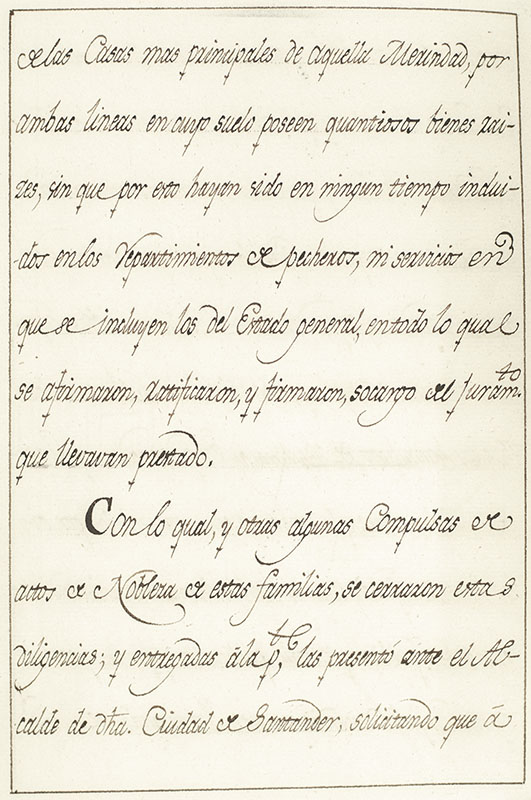 de las Casas mas principales de aquella Merindad, por
ambas lineas en cuyo suelo poseen quantiosos bienes rai-
zes, sin que por esto hayan sido en ningun tiempo inclui-
dos en los repartimientos de pecheros, ni servicios en
que se incluyen los del Estado general, en todo lo qual
se afirmaron, ratificaron, y firmaron, socargo del juram.to
que llevavan prestado.
Con lo qual, y otras algunas Compulsas de
actos de Nobleza de estas familias, se cerraron estas
diligencias; y entregadas á la p.te, las presentó ante el Al-
calde de dha. Ciudad de Santander, solicitando que á